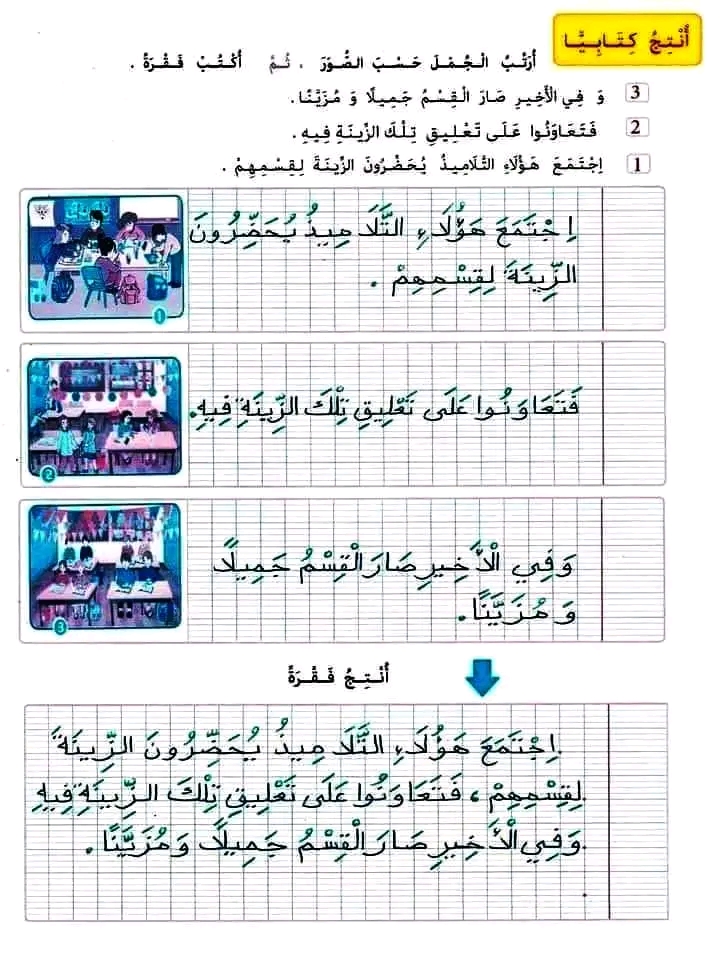 أُنْتِجُ كِتَابِيًّا
أُرَتِّبُ الْجُمَلَ حَسَبَ الصُّوَرَ ، ثُمَّ أَكْتُبُ فَقْرَةً .
3 وَ فِي الْأَخِيرِ صَارَ الْقِسْمُ جَمِيلًا وَ مُزَيَّنًا.
2 فَتَعَاوَنُوا عَلَى تَعْلِيقِ تِلْكَ الزِّينَةِ فِيهِ.
1 اِجْتَمَعَ هَؤُلَاءِ التَّلَامِيذُ يُحَضِّرُونَ الزِّينَةَ لِقِسْمِهِمْ .
اِجْتَمَعَ هَؤُلَاءِ التَّلَامِيذُ يُحَضِّرُونَ
الزِّينَةَ لِقِسْمِهِمْ .
1
فَتَعَاوَنُوا عَلَى تَعْلِيقِ تِلْكَ الزِّينَةِ فِيهِ.
2
وَفِي الْأَخِيرِ صَارَ الْقِسْمُ جَمِيلًا
وَمُزَيَّنًا.
3
أُنْتِجُ فَقْرَةً
اِجْتَمَعَ هَؤُلَاءِ التَّلَامِيذُ يُحَضِّرُونَ الزِّينَةَ
لِقِسْمِهِمْ ، فَتَعَاوَنُوا عَلَى تَعْلِيقِ تِلْكَ الزِّينَةِ فِيهِ
وَفِي الْأَخِيرِ صَارَ الْقِسْمُ جَمِيلًا وَمُزَيَّنًا.